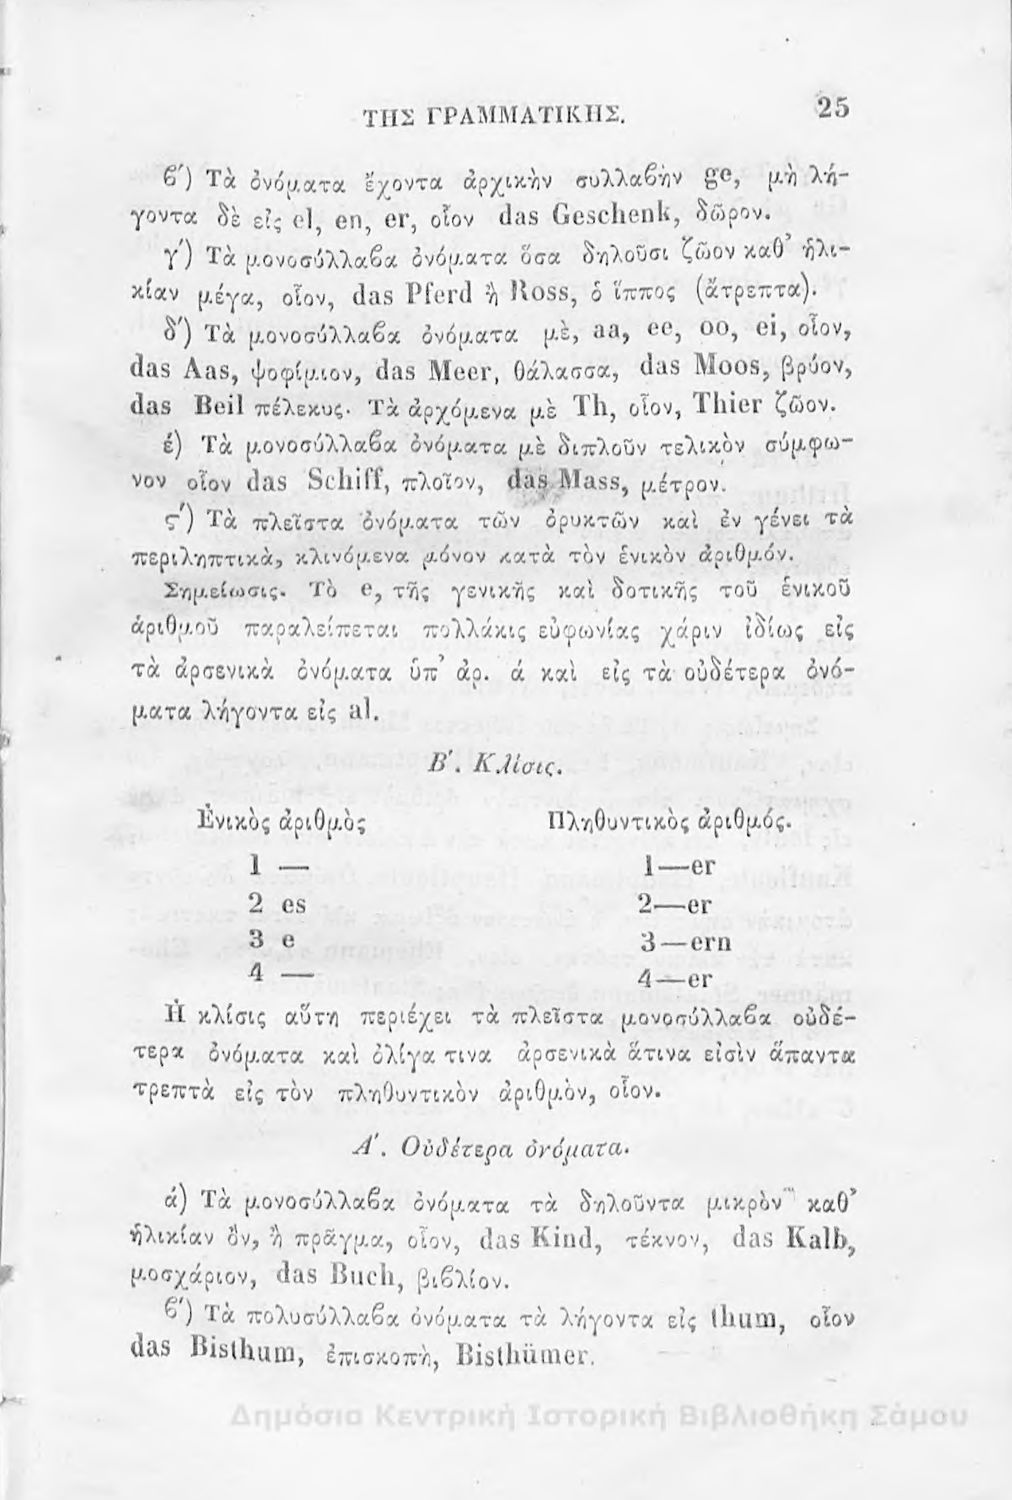 ΤΗΣ ΓΡΑΜΜΑΤΙΚΗΣ. 25
ϐ') Τὰ ὀνόματα ἔχοντα ἀρχικὴν συλλαϐὴν ge, μὴ λή-
γοντα δὲ εἰς el, en, er, οἷον das Geschenk, δῶρον.
γ') Τὰ μονοσύλλαϐα ὀνόματα ὅσα δηλοῦσι ζῶον καθ' ἡλι-
κίαν μέγα, οἷον, das Pferd ἢ Ross, ὁ ἵππος (ἄτρεπτα).
δ') Τὰ μονοσύλλαϐα ὀνόματα μὲ, aa, ee, oo, ei, οἷον,
das Aas, ψοφίμιον, das Meer, θάλασσα, das Moos, βρύον,
das Beil πέλεκυς· Τὰ ἀρχόμενα μὲ Th, οἷον, Thier ζῶον.
έ) Τὰ μονοσύλλαϐα ὀνόματα μὲ διπλοῦν τελικὸν σύμφω-
νον οἷον das Schiff, πλοῖον, das Mass, μέτρον.
ς') Τὰ πλεῖστα ὀνόματα τῶν ὀρυκτῶν καὶ ἐν γένει τὰ
περιληπτικὰ, κλινόμενα μόνον κατὰ τὸν ἑνικὸν ἀριθμόν.
Σημείωσις. Τὸ e, τῆς γενικῆς καὶ δοτικῆς τοῦ ἑνικοῦ
ἀριθμοῦ παραλείπεται πολλάκις εὐφωνίας χάριν ἰδίως εἰς
τὰ ἀρσενικὰ ὀνόματα ὑπ' ἀρ. ά καὶ εἰς τὰ οὐδέτερα ὀνό-
ματα λήγοντα εἰς al.
Β'. Κλίσις.
Ἑνικὸς ἀριθμὸς Πληθυντικὸς ἀριθμός.
1 — 1—er
2 es 2—er
3 e 3—ern
4 — 4—er
Ἡ κλίσις αὕτη περιέχει τὰ πλεῖστα μονοσύλλαϐα οὐδέ-
τερα ὀνόματα καὶ ὀλίγα τινα ἀρσενικὰ ἅτινα εἰσὶν ἅπαντα
τρεπτὰ εἰς τὸν πληθυντικὸν ἀριθμὸν, οἷον.
Α'. Οὐδέτερα ὀνόματα.
ά) Τὰ μονοσύλλαϐα ὀνόματα τὰ δηλοῦντα μικρὸν καθ'
ἡλικίαν ὂν, ἢ πρᾶγμα, οἷον, das Kind, τέκνον, das Kalb,
μοσχάριον, das Buch, βιϐλίον.
ϐ') Τὰ πολυσύλλαϐα ὀνόματα τὰ λήγοντα εἰς thum, οἷον
das Bisthum, ἐπισκοπὴ, Bisthümer.
Δημόσια Κεντρική Ιστορική Βιβλιοθήκη Σάμου